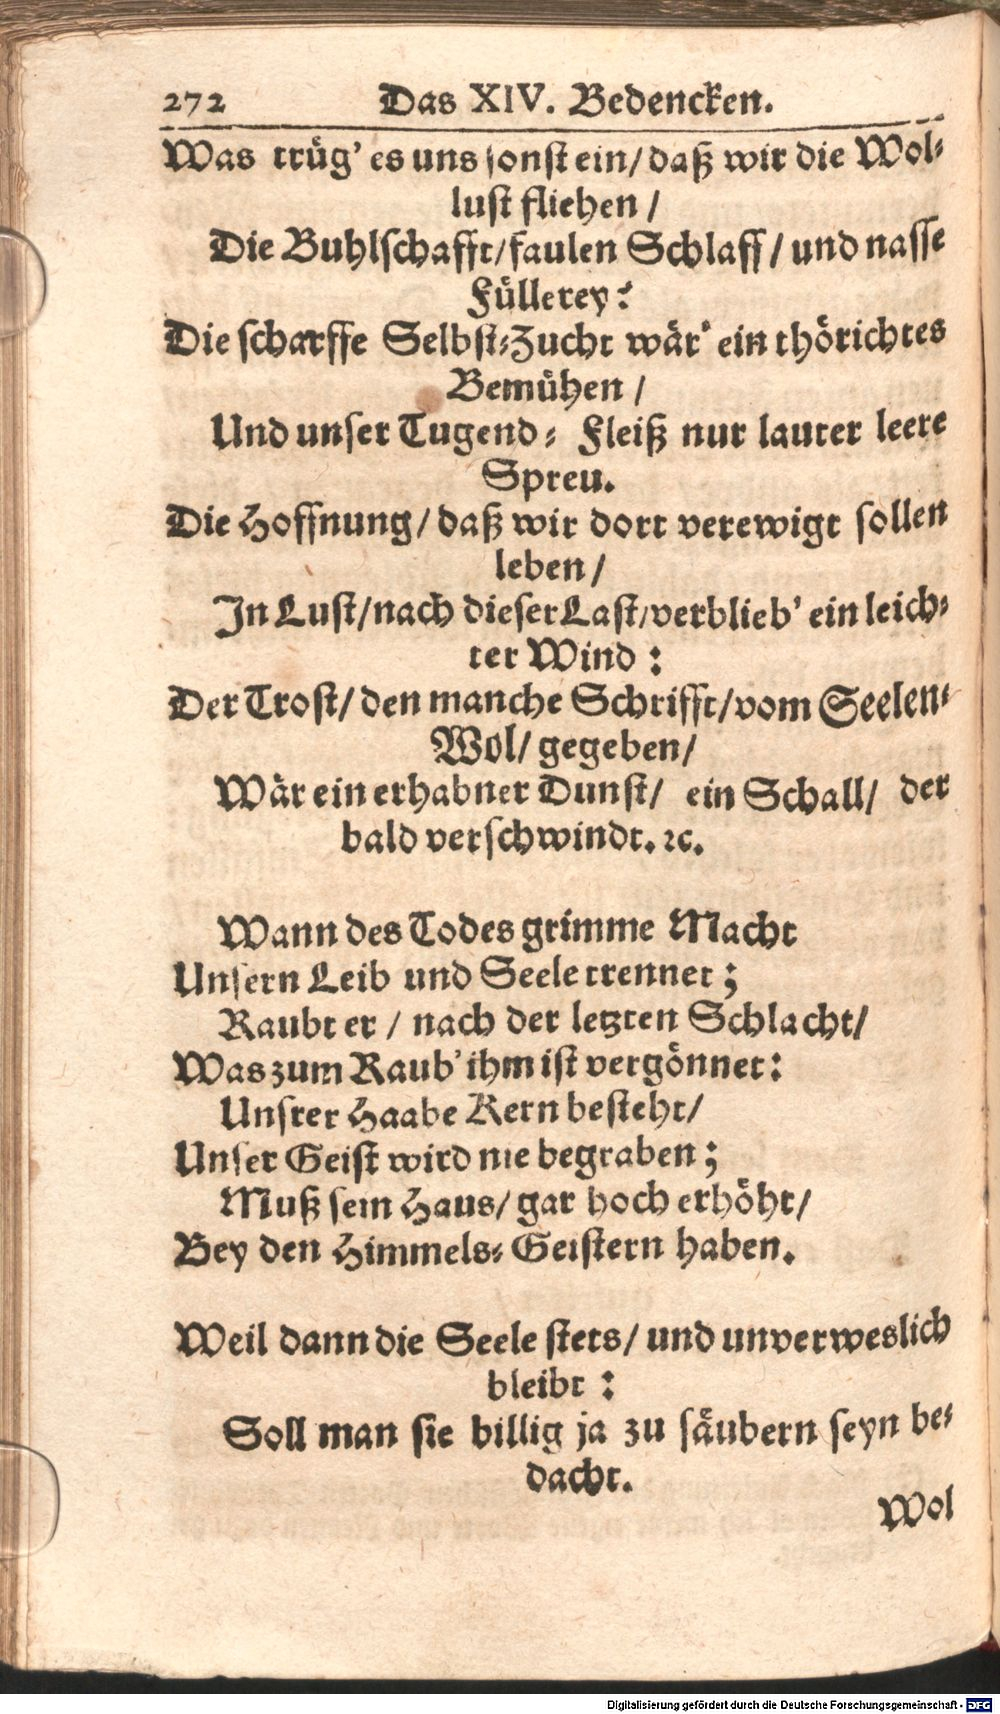 272 Das XIV. Bedencken.
Was trüg' es uns sonst ein/ daß wir die Wol-
lust fliehen /
Die Buhlschafft/ faulen Schlaff / und nasse
Füllerey?
Die scharffe Selbst-Zucht wär' ein thörichtes
Bemühen /
Und unser Tugend- Fleiß nur lauter leere
Spreu.
Die Hoffnung/ daß wir dort verewigt sollen
leben /
In Lust/ nach dieser Last/ verblieb' ein leich-
ter Wind :
Der Trost/ den manche Schrifft/ vom Seelen-
Wol/ gegeben/
Wär ein erhabner Dunst/ ein Schall/ der
bald verschwindt. ꝛc.
Wann des Todes grimme Macht
Unsern Leib und Seele trennet;
Raubt er / nach der letzten Schlacht/
Was zum Raub' ihm ist vergönnet:
Unsrer Haabe Kern besteht/
Unser Geist wird nie begraben;
Muß sein Haus/ gar hoch erhöht/
Bey den Himmels- Geistern haben.
Weil dann die Seele stets/ und unverweslich
bleibt :
Soll man sie billig ja zu säubern seyn be-
dacht.
Wol
Digitalisierung gefördert durch die Deutsche Forschungsgemeinschaft - DFG